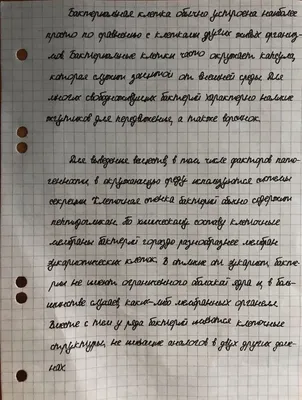 Бактериальная клетка обычно устроена наиболее
просто по сравнению с клетками других живых организ-
мов. Бактериальные клетки часто окружает капсула,
которая служит защитой от внешней среды. Для
многих свободноживущих бактерий характерно наличие
жгутиков для передвижения, а также ворсинок.
Для выведения веществ, в том числе факторов пато-
генности, в окружающую среду используются системы
секреции. Клеточная стенка бактерий обычно содержит
пептидогликан. По химическому составу клеточные
мембраны бактерий гораздо разнообразнее мембран
эукариотических клеток. В отличие от эукариот, бакте-
рии не имеют ограниченного оболочкой ядра и, в боль-
шинстве случаев, каких-либо мембранных органелл.
Вместе с тем у ряда бактерий имеются клеточные
структуры, не имеющие аналогов в двух других доме-
нах.